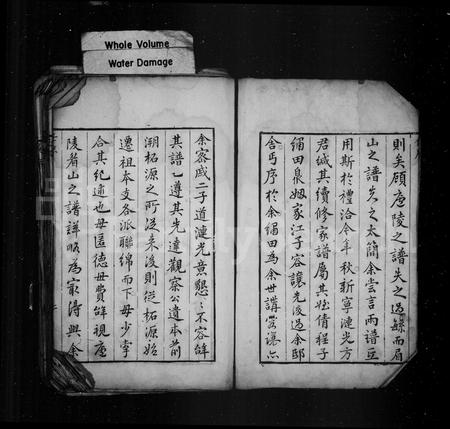 Whole Volume
Water Damage
則矣顧廬陵之譜失之過繇而眉
山之譜失之太簡余嘗言兩譜互
用斯於禮洽今年秋新寧漣光方
君緘其續修家譜屬其姪倩程子
繩田泉姻家江子容讓先後過余邸
舍丐序於余繩田為余世講容讓亦
余密戚二子道漣光意懇〻不容辭
其譜乙遵其先達觀察公遺本前
溯柘源之所從来後則從柘源始
遷祖本支各派聯綿而下毋少牽
合其紀逋也毋匿德毋費辭視廬
陵眉山之譜詳順為最得與余